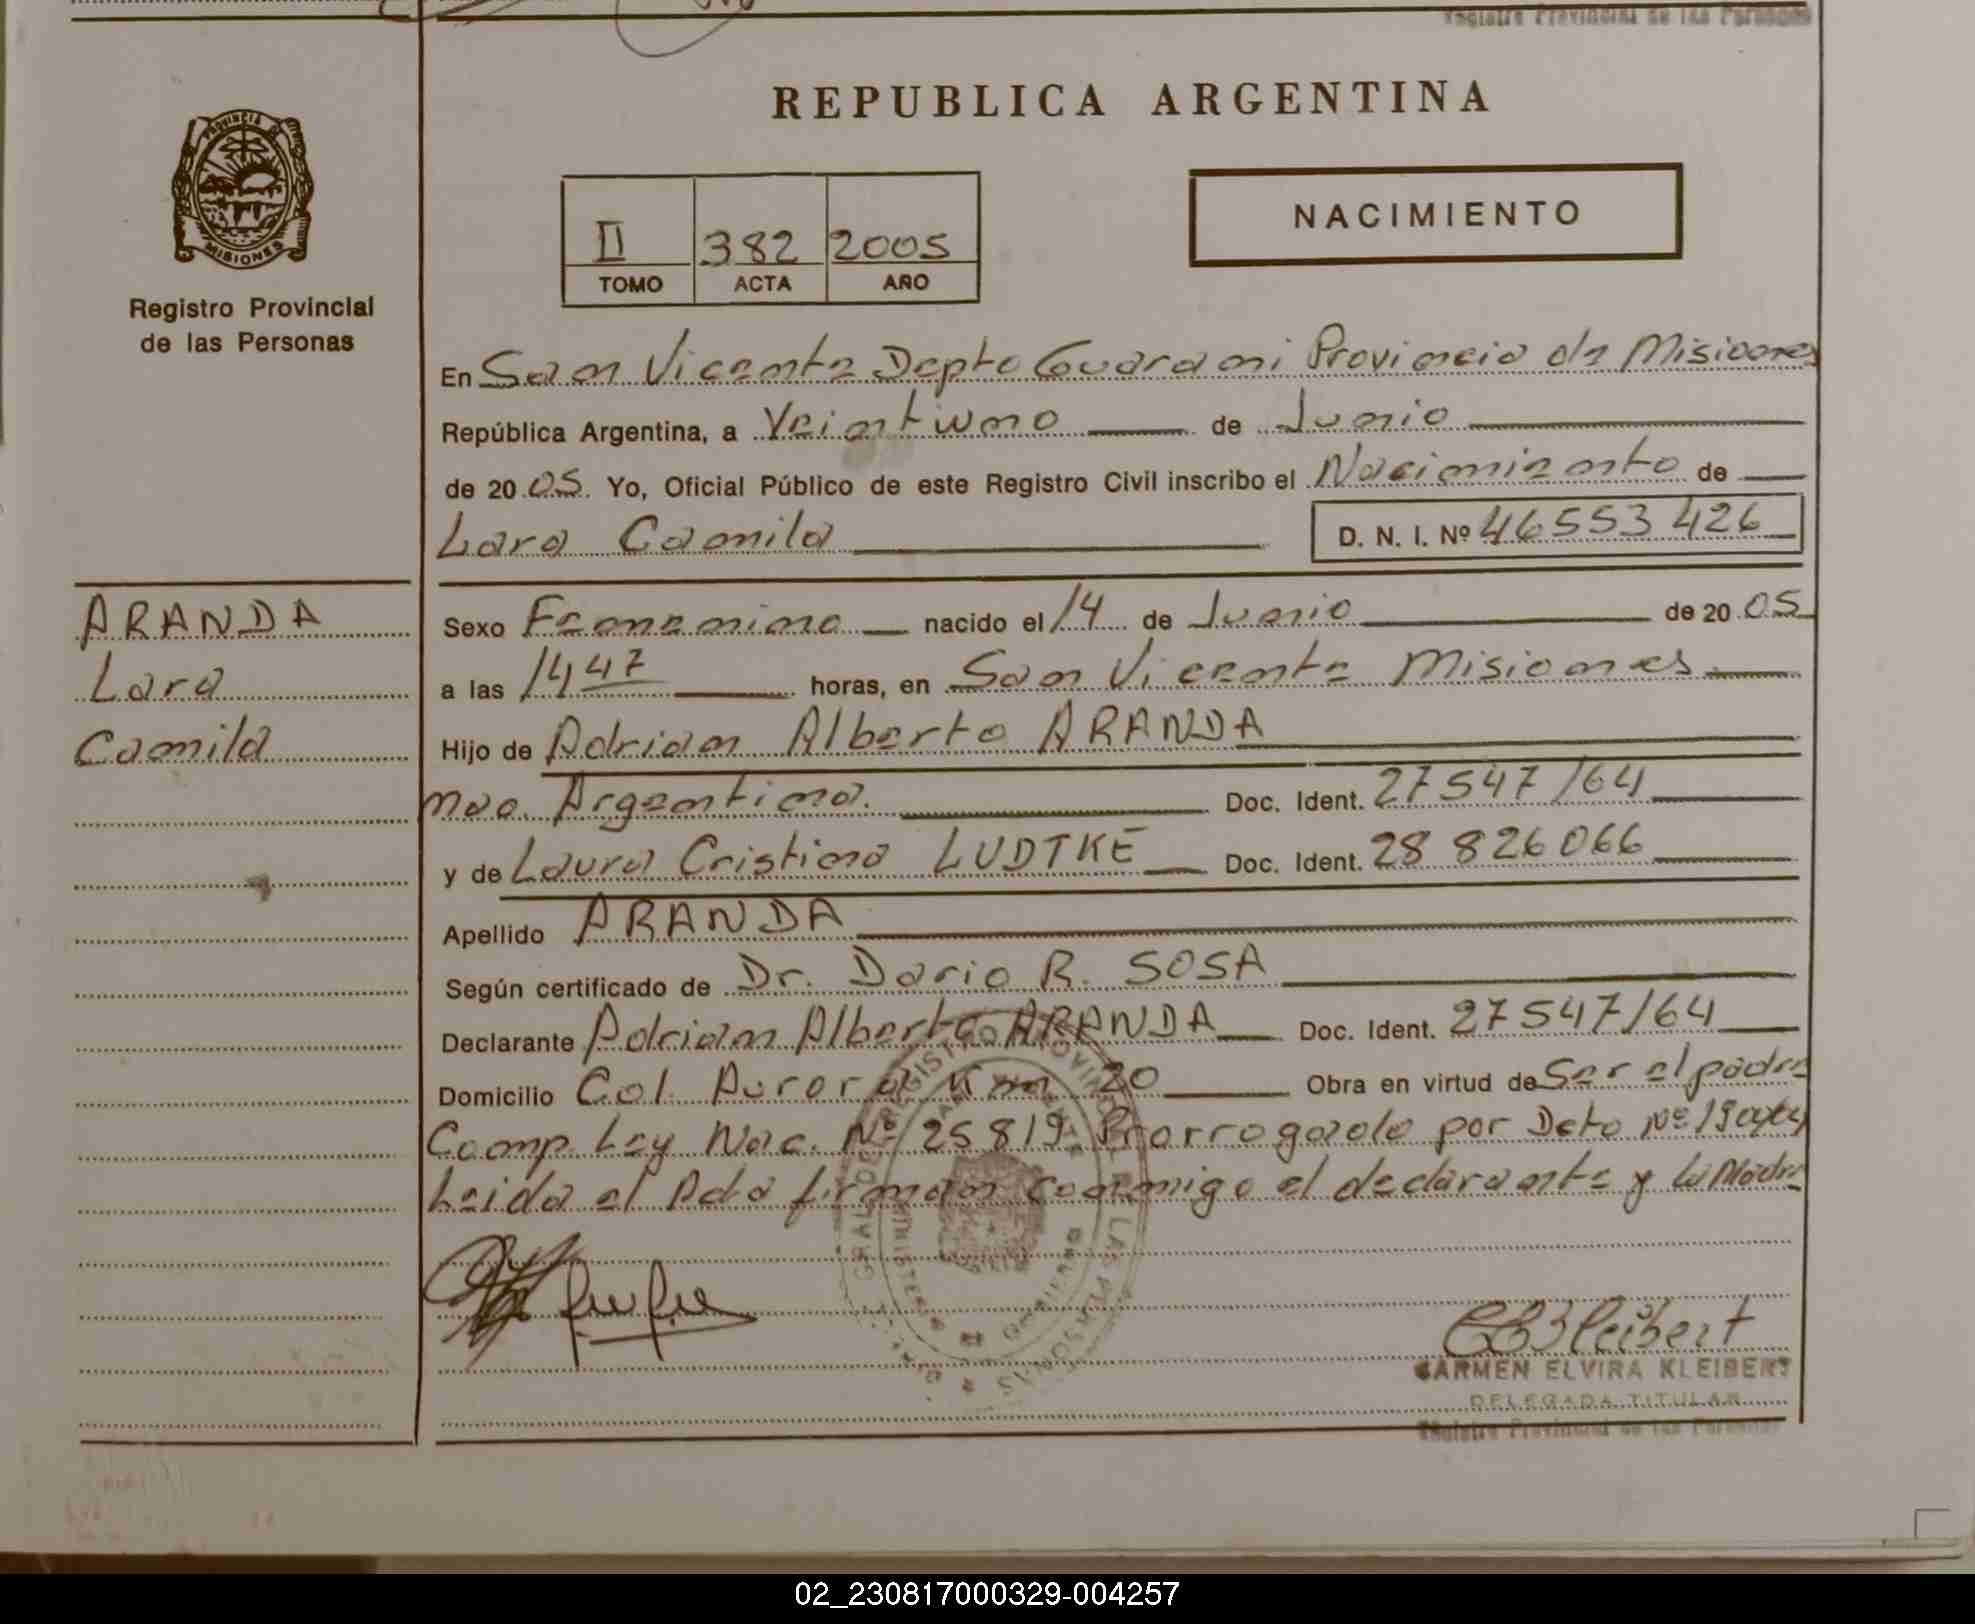 Registro Provincial de las Personas
REPUBLICA ARGENTINA
PROVINCIA DE
MISIONES
Registro Provincial
de las Personas
II 382 2005
TOMO ACTA AÑO
NACIMIENTO
En San Vicente Depto Guarani Provincia de Misiones
República Argentina, a Veintiuno de Junio
de 2005. Yo, Oficial Público de este Registro Civil inscribo el Nacimiento de
Lara Camila D. N. I. Nº 46553426
ARANDA
Lara
Camila
Sexo Femenino nacido el 14 de Junio de 2005
a las 14 47 horas, en San Vicente Misiones
Hijo de Adrian Alberto ARANDA
nac. Argentina. Doc. Ident. 27547164
y de Laura Cristina LUDTKE Doc. Ident. 28 826066
Apellido ARANDA
Según certificado de Dr. Dario R. SOSA
Declarante Adrian Alberto ARANDA Doc. Ident. 27547164
Domicilio Col. Aurora Km 20 Obra en virtud de Ser el padre
Comp. Ley Nac. Nº 25819 Prorrogado por Dcto Nº
Leida el Acta firman conmigo el declarante y la Madre
CEKleibert
CARMEN ELVIRA KLEIBERT
DELEGADA TITULAR
Registro Provincial de las Personas
02_230817000329-004257